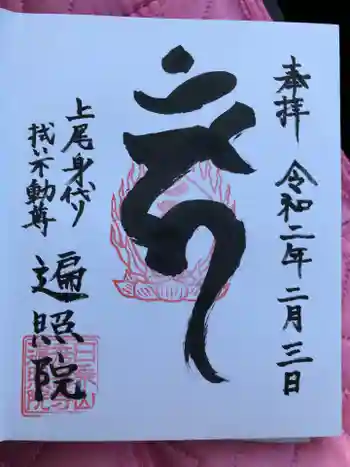 奉拝
令和二年二月三日
上尾身代り
拭い不動尊
遍照院